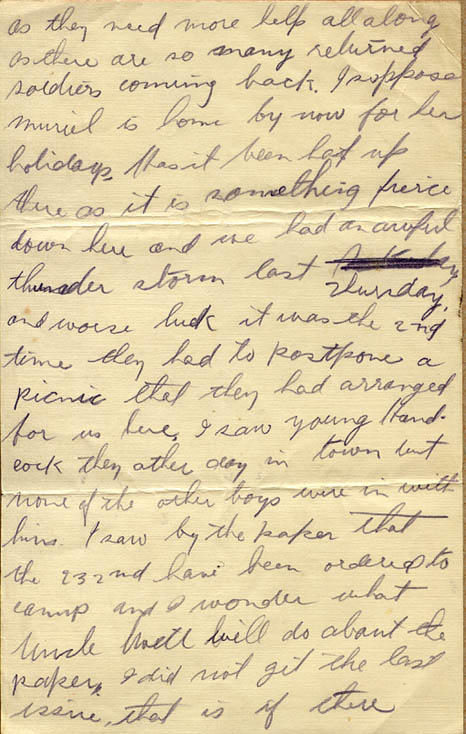 as they need more help all along
as there are so many returned
soldiers coming back. I suppose
Muriel is home by now for her
holidays, Has it been hot up
there as it is something fierce
down here and we had an awful
thunder storm last
Thursday,
and worse luck it was the 2nd
time they had to postpone a
picnic that they had arranged
for us here, I saw young Hand-
cock they other day in town but
none of the other boys were in with
him. I saw by the paper that
the 232nd have been ordered to
camp and I wonder what
Uncle will do about the
paper, I did not get the last
issue, that is if there